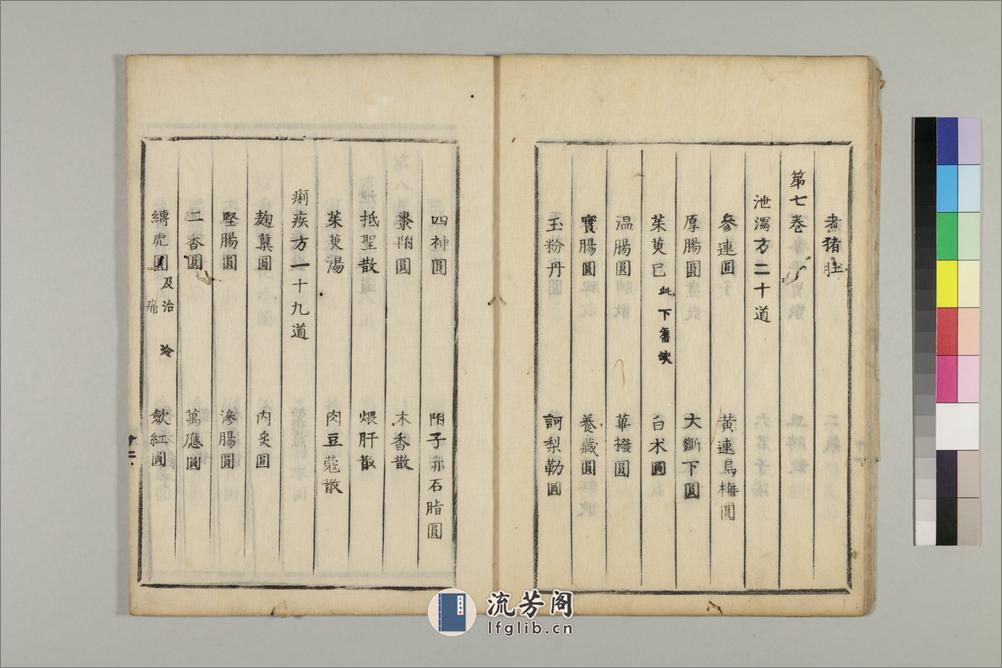 煮猪肚
第七巻
泄瀉方二十道
參連圓 黄連烏梅圓
厚腸圓 大斷下圓
茱萸已 此下舊缺 白朮圓
温腸圓 蓽撥圓
實腸圓 養藏圓
玉粉丹 訶梨勒圓
四神圓 附子赤石脂圓
棗附圓 木香散
抵聖散 煨肝散
茱萸湯 肉豆蔻散
痢疾方一十九道
麹蘗圓 内炙圓
堅腸圓 滲腸圓
二香圓 萬應圓
縛虎圓 及治冷痛 斂紅圓
十二
流芳阁
lfglib.cn